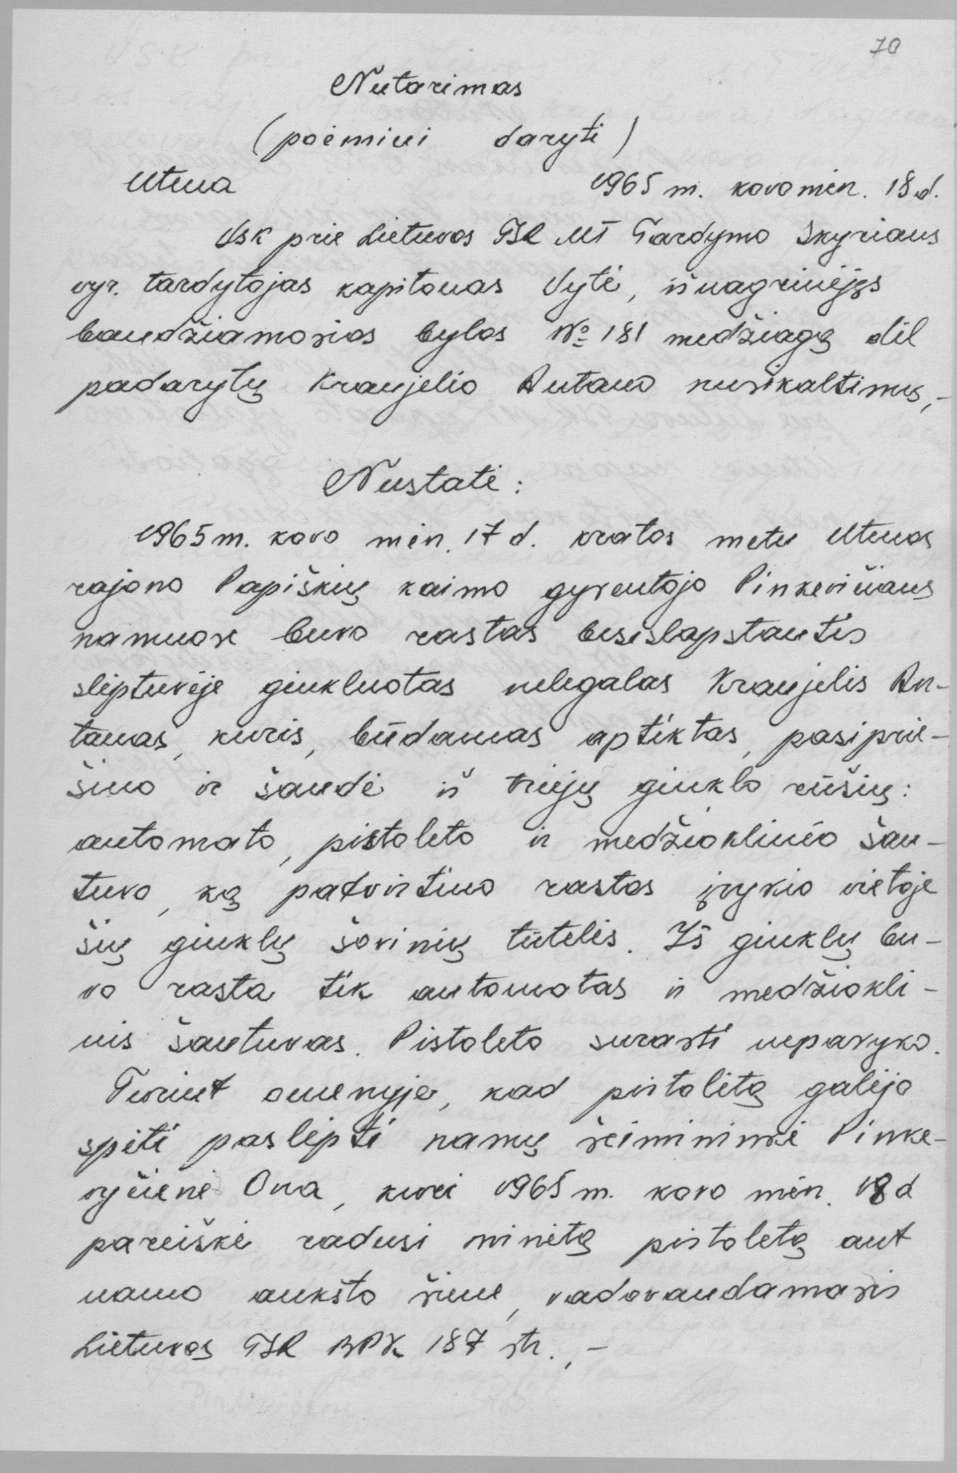 70
Nutarimas
(poėmiui daryti)
Utena 1965 m. kovo mėn. 18 d.
VSK prie Lietuvos TSR MT Tardymo Skyriaus
vyr. tardytojas kapitonas Vytė, išnagrinėjęs
baudžiamosios bylos № 181 medžiagą dėl
padarytų Kraujelio Antano nusikaltimų,-
Nustatė:
1965 m. kovo mėn. 17 d. kratos metu Utenos
rajono Papiškių kaimo gyventojo Pinkevičiaus
namuose buvo rastas besislapstantis
slėptuvėje ginkluotas nelegalas Kraujelis An-
tanas, kuris, būdamas aptiktas, pasiprie-
šino ir šaudė iš trijų ginklo rūšių:
automato, pistoleto ir medžioklinio šau-
tuvo, ką patvirtino rastos įvykio vietoje
šių ginklų šovinių tūtelės. Iš ginklų bu-
vo rasta tik automatas ir medžiokli-
nis šautuvas. Pistoleto surasti nepavyko.
Turint omenyje, kad pistoletą galėjo
spėti paslėpti namų šeimininkė Pinke-
vyčienė Ona, kuri 1965 m. kovo mėn. 18 d
pareiškė radusi minėtą pistoletą ant
namo aukšto šiene, vadovaudamasis
Lietuvos TSR BPK 187 str.,-